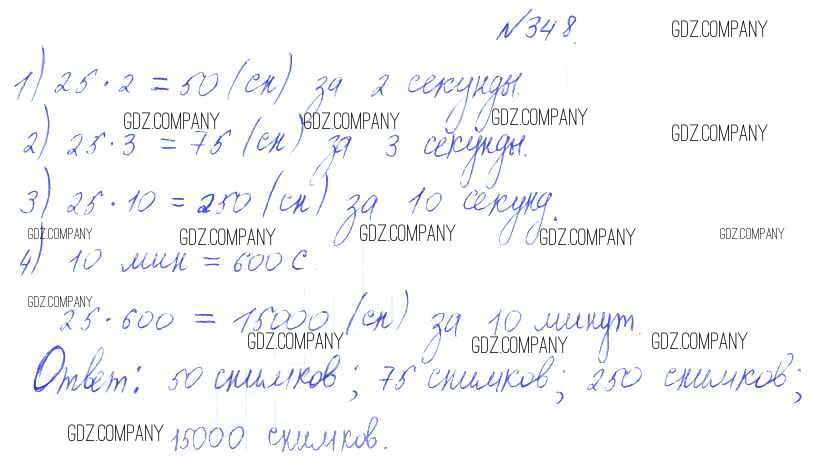 №348. GDZ.COMPANY
1) 25 · 2 = 50 (сн) за 2 секунды.
GDZ.COMPANY GDZ.COMPANY GDZ.COMPANY GDZ.COMPANY
2) 25 · 3 = 75 (сн) за 3 секунды.
3) 25 · 10 = 250 (сн) за 10 секунд.
GDZ.COMPANY GDZ.COMPANY GDZ.COMPANY GDZ.COMPANY GDZ.COMPANY
4) 10 мин = 600 с
GDZ.COMPANY
25 · 600 = 15000 (сн) за 10 минут.
GDZ.COMPANY GDZ.COMPANY GDZ.COMPANY
Ответ: 50 снимков; 75 снимков; 250 снимков;
GDZ.COMPANY 15000 снимков.